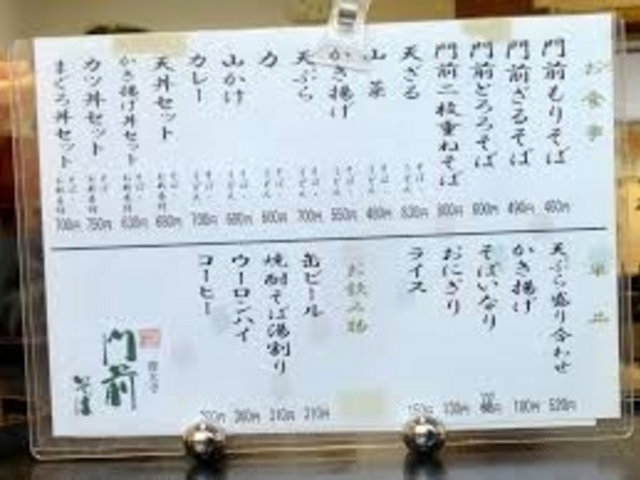 お食事
門前もりそば 450円
門前ざるそば 490円
門前とろろそば 600円
門前二枚重ねそば 800円
天ざる 830円
山菜 そば・うどん 480円
かき揚げ そば・うどん 550円
天ぷら そば・うどん 700円
力 そば・うどん 600円
山かけ そば・うどん 680円
カレー そば・うどん 700円
天丼セット 680円
かき揚げ丼セット 630円
カツ丼セット 750円
まぐろ丼セット 700円
単品
天ぷら盛り合わせ 520円
かき揚げ 180円
そばいなり
おにぎり 130円
ライス 150円
お飲み物
缶ビール 310円
焼酎そば湯割り 310円
ウーロンハイ 360円
コーヒー
門前
そば